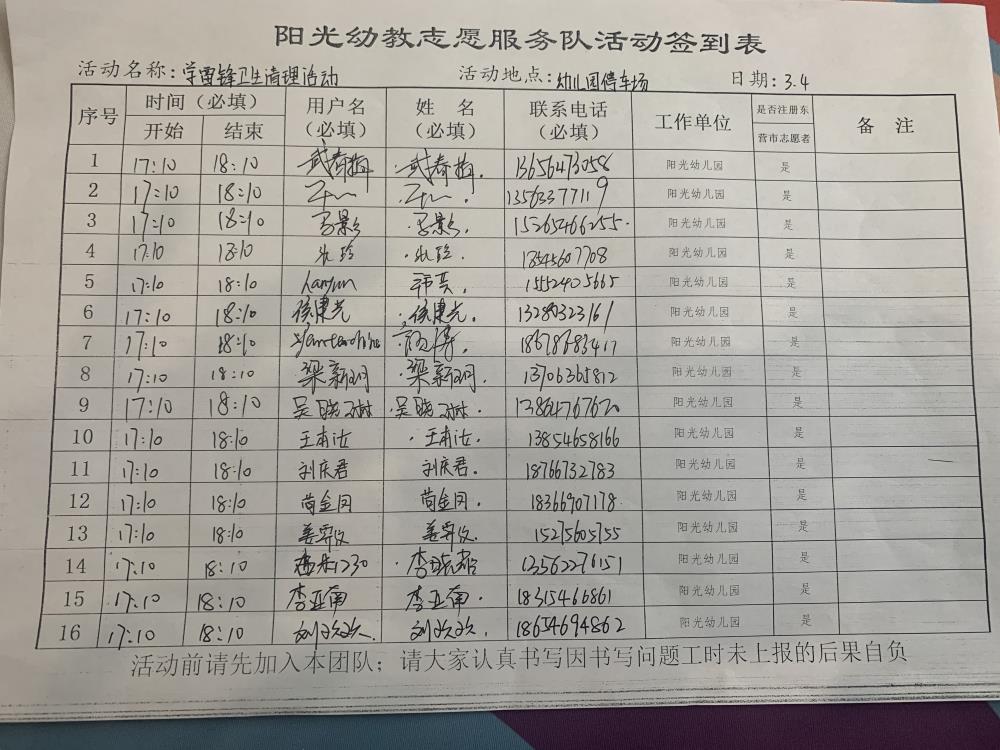 阳光幼教志愿服务队活动签到表
活动名称:学雷锋卫生清理活动 活动地点:幼儿园停车场 日期:3.4
序号 时间（必填） 用户名（必填） 姓名（必填） 联系电话（必填） 工作单位 是否注册东营市志愿者 备注
开始 结束
1 17:10 18:10 武春梅 武春梅. 13656473058 阳光幼儿园 是
2 17:10 18:10 13563377119 阳光幼儿园 是
3 17:10 18:10 15265466255 阳光幼儿园 是
4 17:10 18:10 阳光幼儿园 是
5 17:10 18:10 15552405665 阳光幼儿园 是
6 17:10 18:10 徐建光 徐建光. 13280323161 阳光幼儿园 是
7 17:10 18:10 18678683417 阳光幼儿园 是
8 17:10 18:10 梁新明 梁新明. 13706365812 阳光幼儿园 是
9 17:10 18:10 吴晓琳 吴晓琳. 13864767620 阳光幼儿园 是
10 17:10 18:10 13854658166 阳光幼儿园 是
11 17:10 18:10 刘庆君 刘庆君. 18766732783 阳光幼儿园 是
12 17:10 18:10 苗金月 苗金月. 18366907178 阳光幼儿园 是
13 17:10 18:10 15275605755 阳光幼儿园 是
14 17:10 18:10 13562276151 阳光幼儿园 是
15 17:10 18:10 李亚南 李亚南. 18315466861 阳光幼儿园 是
16 17:10 18:10 刘欢欢. 刘欢欢. 18654694862 阳光幼儿园 是
活动前请先加入本团队；请大家认真书写因书写问题工时未上报的后果自负